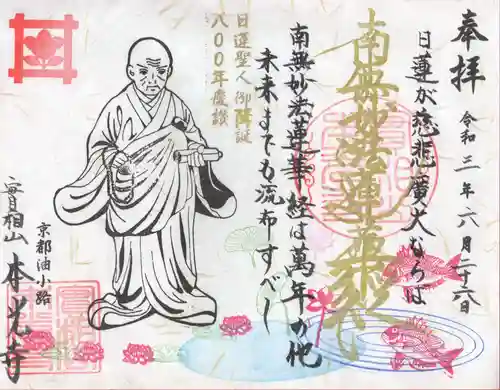 奉拝
令和三年六月二十六日
日蓮が慈悲廣大ならは
南無妙法蓮華経
南無妙法蓮華経は萬年の他
未来までも流布すべし
日蓮聖人御降誕
八〇〇年慶讃
京都油小路
實相山 本光寺